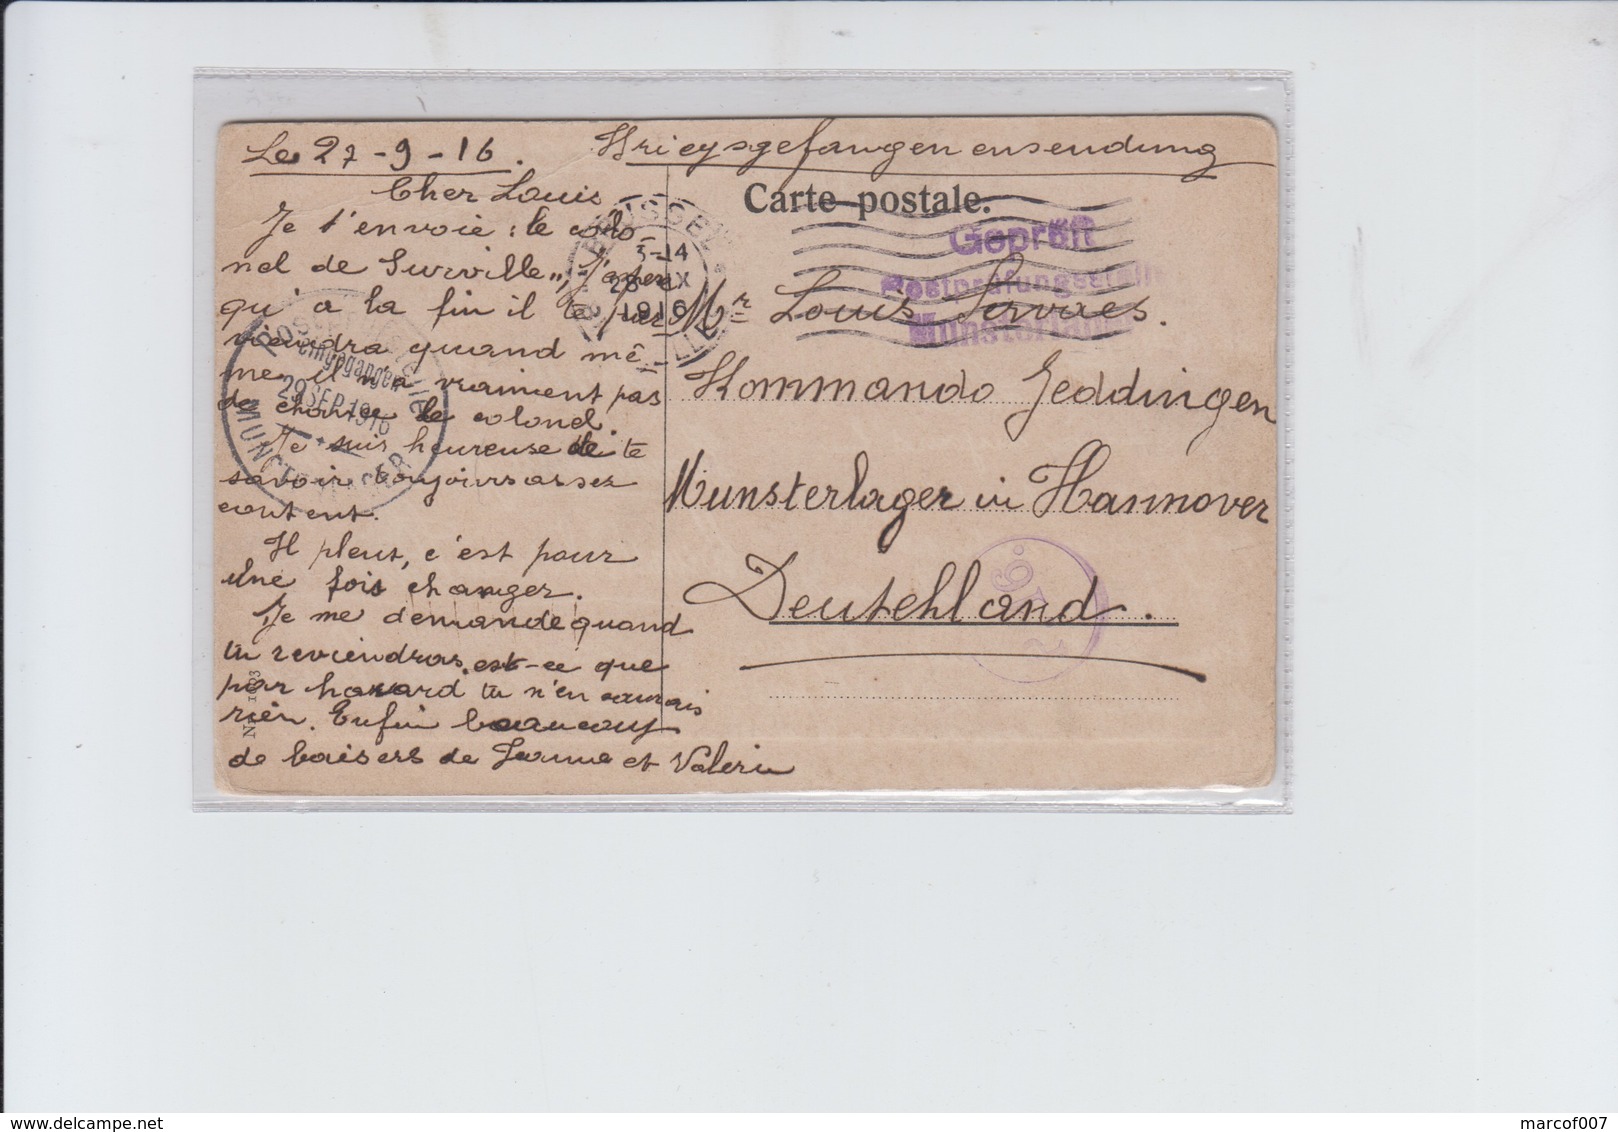 Le 27-9-16.
Kriegsgefangenensendung
Carte postale.
Cher Louis
Je t'envoie : le colo
nel de Surville „ J'espère
qu'à la fin il te par
viendra quand mê
me il n'a vraiment pas
de chance le colonel.
Je suis heureuse de te
savoir toujours assez
content.
Il pleut, c'est pour
une fois changer.
Je me demande quand
tu reviendras, est-ce que
par hasard tu n'en saurais
rien. Enfin beaucoup
de baisers de Jeanne et Valerie
Mr Louis Servaes.
Kommando Jeddingen
Munsterlager in Hannover
Deutchland.
Geprüft
Postprüfungsstelle
Munsterlager
BRÜSSEL
3-14
28 IX
1916
eingegangen
29 SEP. 1916
MUNSTERLAGER
marcof007